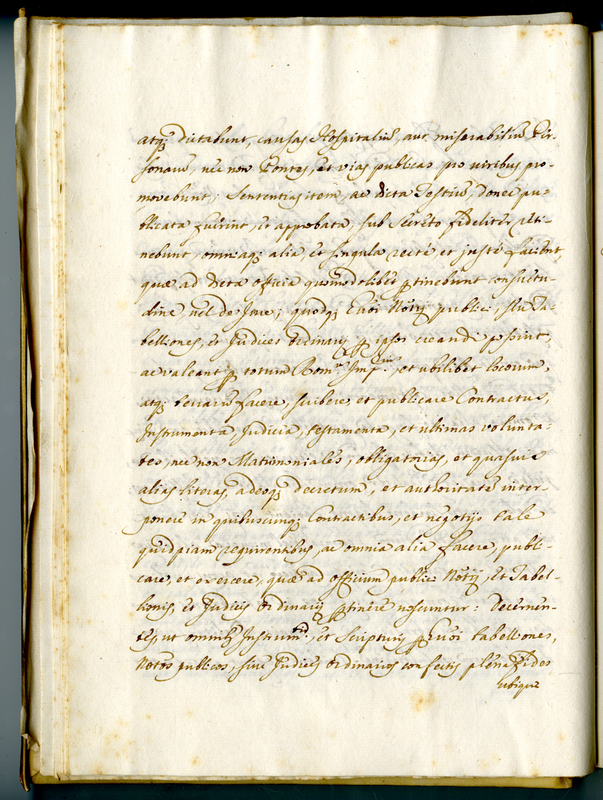 atq; dictabunt, causas Hospitaliũ, aut miserabiliũ Per-
sonarũ, nec non Pontes, et vias publicas pro viribus pro-
movebunt; Sententias item, ac dicta Testiũ, donec pu-
blicata fuerint, et approbata, sub secreto fideliter reti-
nebunt, omniaq; alia, et singula recte, et juste facient,
quæ ad dicta officia quomodolibet ꝑtinebunt consuetu-
dine vel de Jure; quodq; Notrij publici, seu Ta-
belliones, et Judices ordinarij ꝑ ipsos creandi possint,
ac valeant ꝑ totum Rom. Imp., et ubilibet locorum,
atq; terrarũ facere, scribere, et publicare Contractus,
Instrumenta, Judicia, testamenta, et ultimas volunta-
tes, nec non Matrimoniales, obligatorias, et quasvis
alias literas, adeoq; decretum, et authoritatẽ inter-
ponere in quibuscunq; Contractibus, et negotijs tale
quidpiam requirentibus, ac omnia alia facere, publi-
care, et exercere, quæ ad officium publici Notrij, et Tabel-
lionis, et Judicis ordinarij ꝑtinere noscuntur: Decernen-
tes, ut omnibus Instrumtis, et Scripturis ꝑ tabelliones,
Notros publicos, sive Judices ordinarios confectis plena fides
ubique